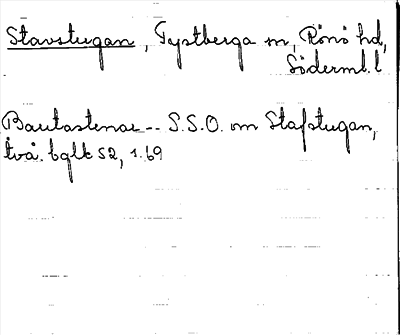 Stavstugan, Tystberga sn, Rönö hd,
Söderml. l
Bautastenar -- S.S.O. om Stafstugan,
två. bglk 52, 1.69